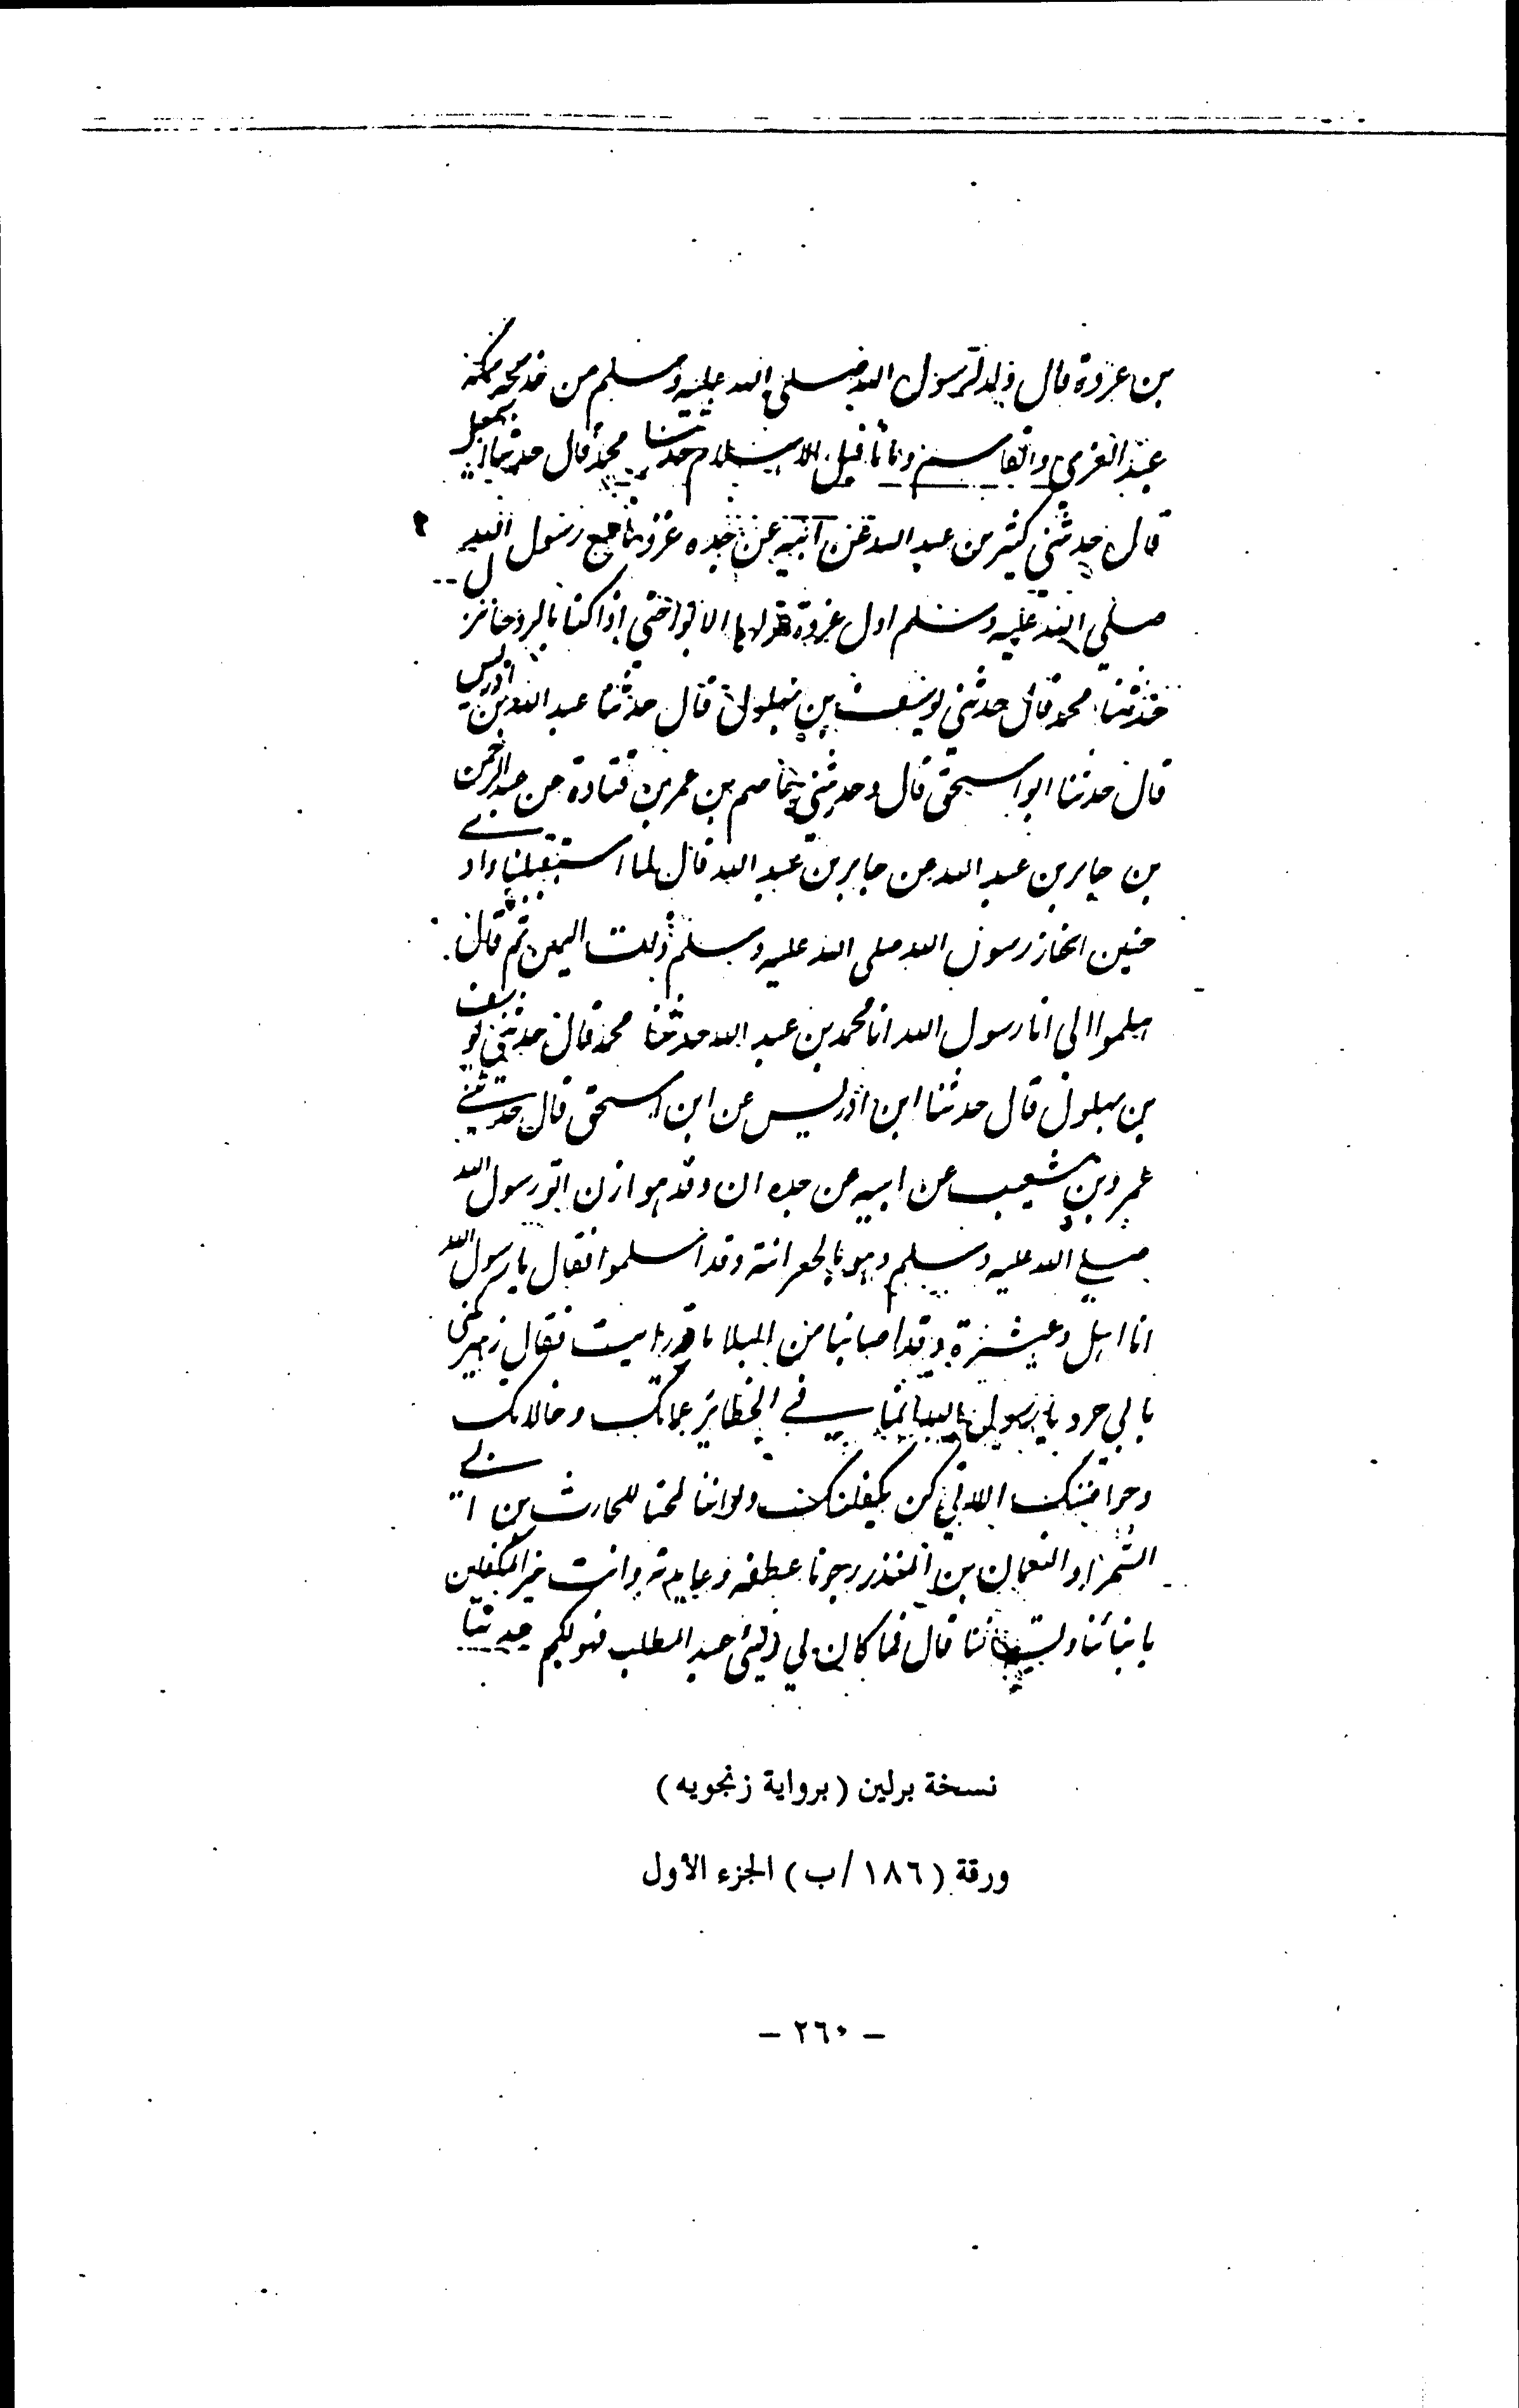 بن عروة قال ولد لرسول الله صلى الله عليه وسلم من خديجة بمكة
عبد العزى والقاسم وماتا قبل الاسلام حدثنا محمد قال حدثنا اسمعيل
قال حدثني كثير بن عبد الله عن ابيه عن جده غزونا مع رسول الله
صلى الله عليه وسلم اول غزوة الابوا حتى اذا كنا بالروحا نزل
حدثنا محمد قال حدثني يوسف بن بهلول قال حدثنا عبد الله بن ادريس
قال حدثنا ابو اسحق قال وحدثني عاصم بن عمر بن قتادة عن عبد الرحمن
بن جابر بن عبد الله عن جابر بن عبد الله قال لما استقبلنا وادي
حنين انحاز رسول الله صلى الله عليه وسلم ذات اليمين ثم قال
هلموا الى انا رسول الله انا محمد بن عبد الله حدثنا محمد قال حدثني يوسف
بن بهلول قال حدثنا ابن ادريس عن ابن اسحق قال حدثني
عمرو بن شعيب عن ابيه عن جده ان وفد هوازن اتو رسول الله
صلى الله عليه وسلم وهو بالجعرانة وقد اسلموا فقال يا رسول الله
انا اهل وعشيرة وقد اصابنا من البلا ما قد رايت فقال زهير يكنى
بابي جرد يا رسول الله انما في الحظائر عماتك وخالاتك
وحواضنك اللاتي كن يكفلنك ولو اننا لمحنا للحارث بن ابي
الشمر او النعمان بن المنذر رجونا عطفه وعايدته وانت خير المكفلين
بابنائنا ونسائنا قال فما كان لي ولبني عبد المطلب فهو لكم حدثنا
نسخة برلين (برواية زنجويه)
ورقة (١٨٦/ب) الجزء الأول
– ٢٦٠ –